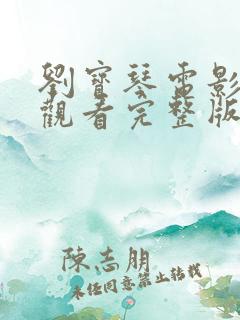 劉寶琴電影
觀看完整版
陳志朋
未經同意禁止轉載